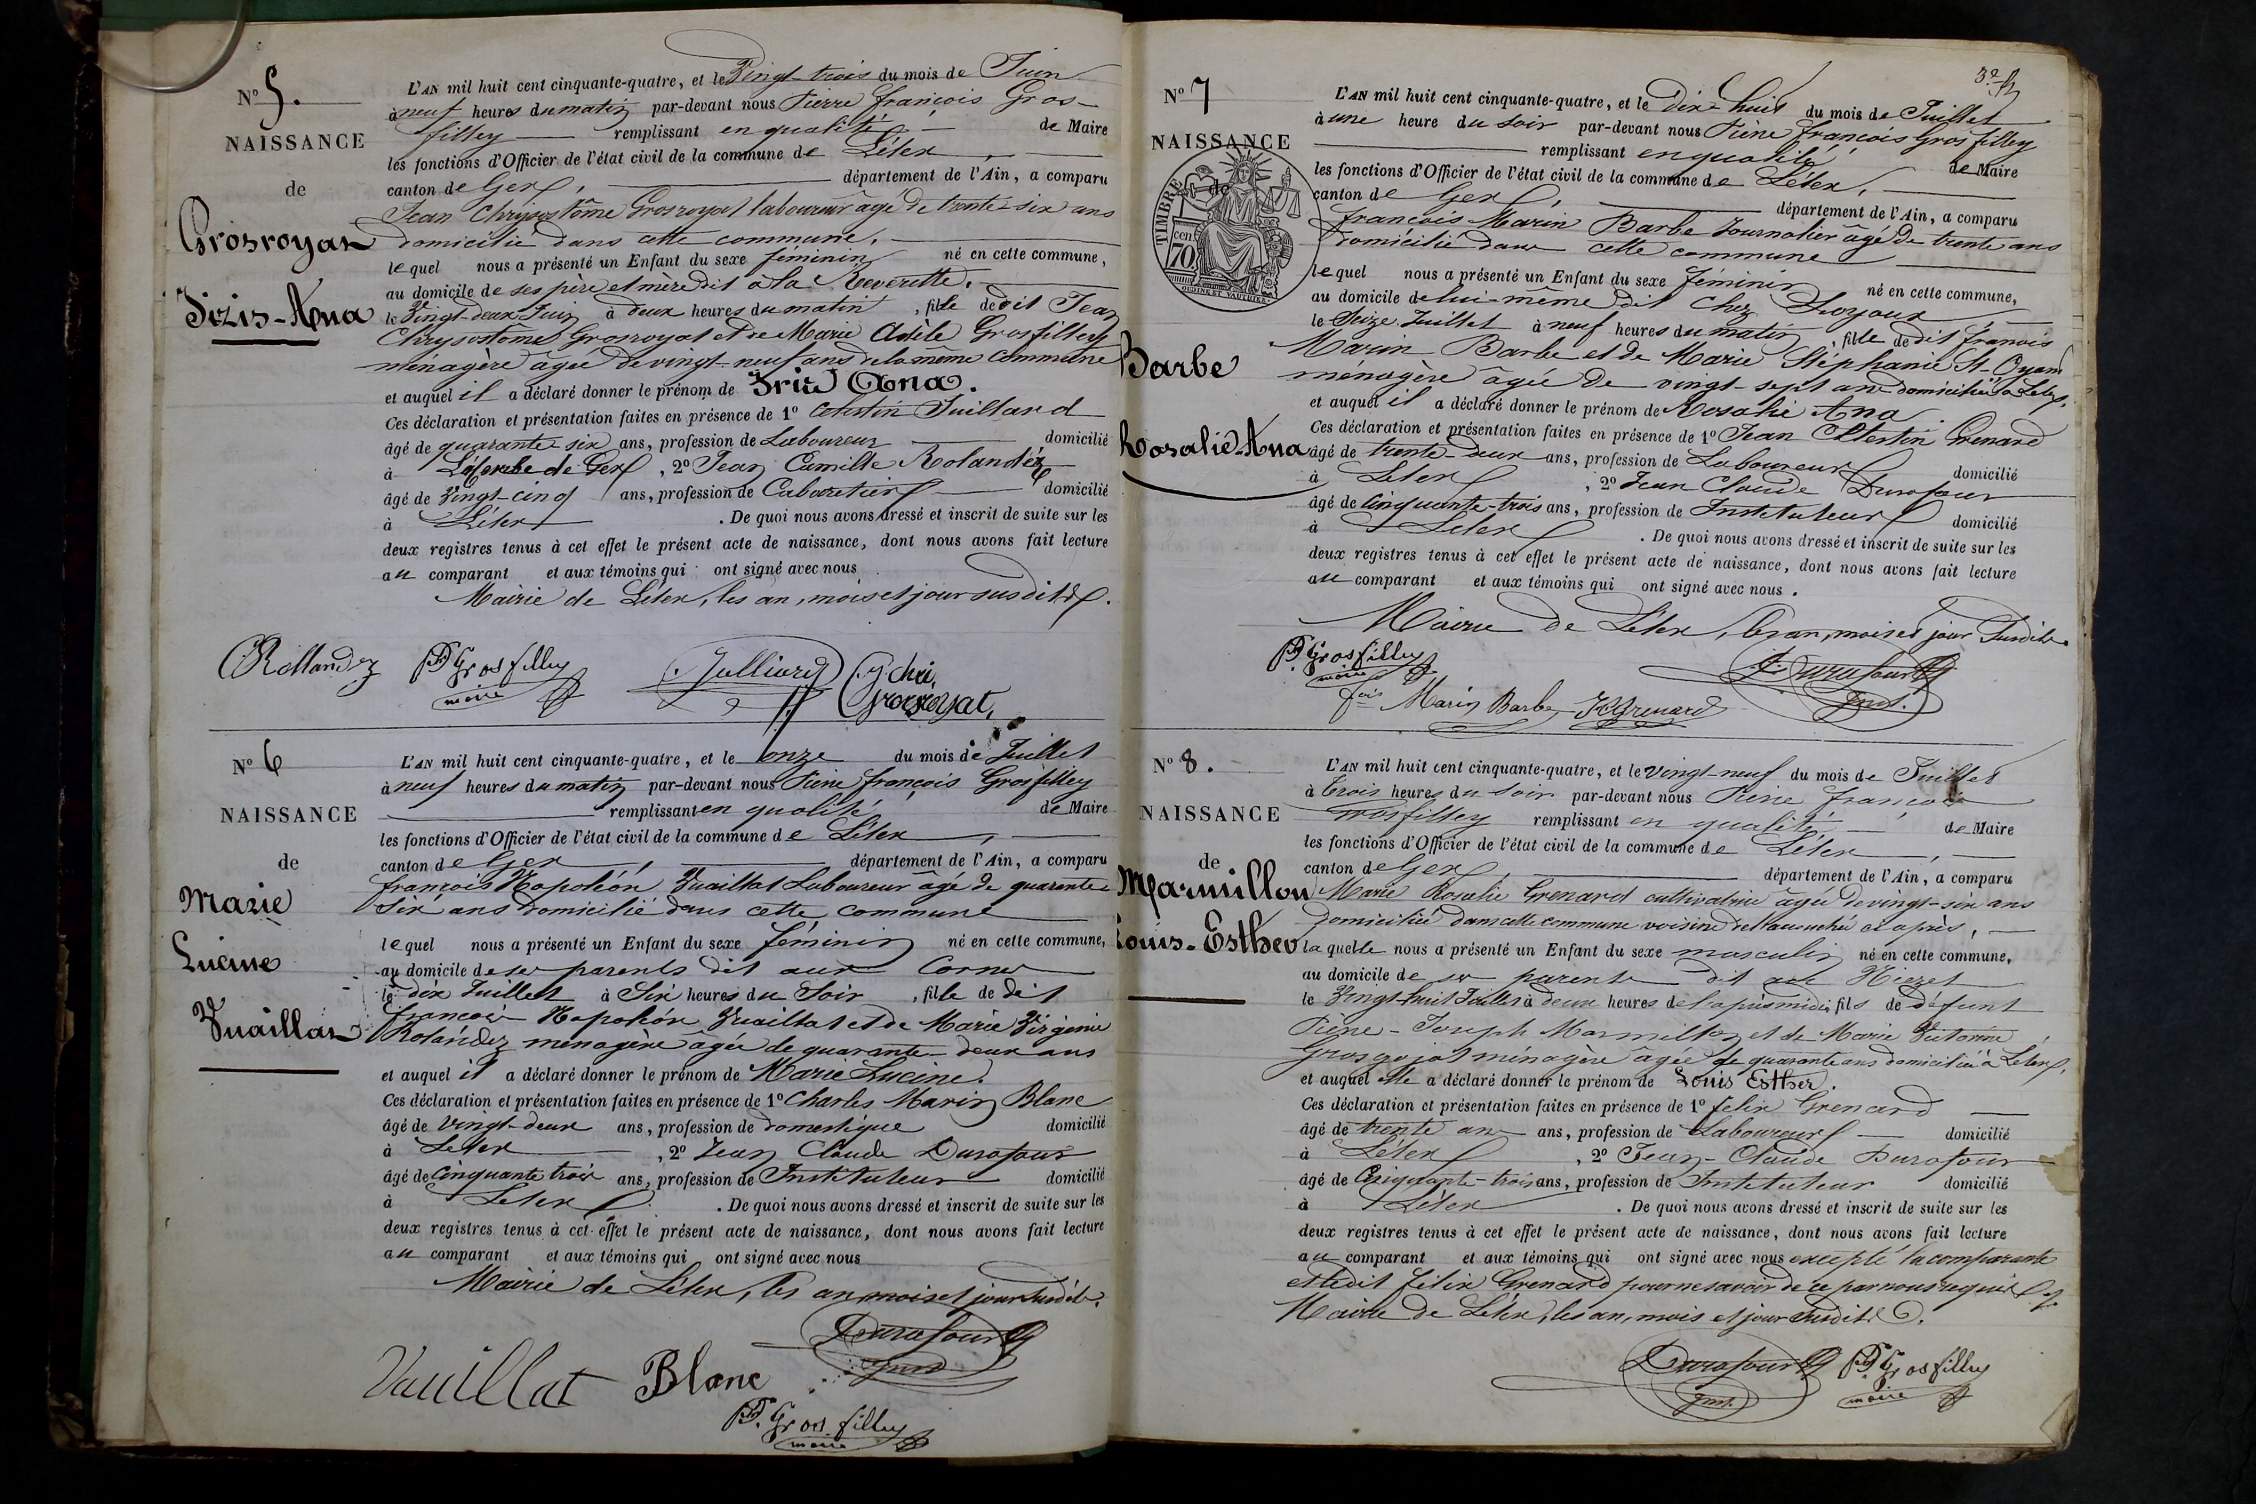 N° 5.
NAISSANCE
de
Grosroyat
Iris-Ana
L'AN mil huit cent cinquante-quatre, et le Vingt-trois du mois de Juin
à neuf heures du matin par-devant nous Pierre françois Gros-
filley remplissant en qualité de Maire
les fonctions d'Officier de l'état civil de la commune de Lélex
canton de Gex, département de l'Ain, a comparu
Jean Chrysostôme Grosroyat laboureur agé de trente-six ans
domicilié dans cette commune,
lequel nous a présenté un Enfant du sexe féminin né en cette commune,
au domicile de ses père et mère dit à la
le Vingt-deux Juin à deux heures du matin, fille de dit Jean
Chrysostôme Grosroyat et de Marie Adèle Grosfilley
ménagère agée de vingt-neuf ans de la même commune
et auquel il a déclaré donner le prénom de Iris Ana.
Ces déclaration et présentation faites en présence de 1° Célestin Juillard
âgé de quarante-six ans, profession de Laboureur domicilié
à de Gex, 2° Jean Camille Rolandez
âgé de Vingt-cinq ans, profession de Cabaretier domicilié
à Lélex. De quoi nous avons dressé et inscrit de suite sur les
deux registres tenus à cet effet le présent acte de naissance, dont nous avons fait lecture
au comparant et aux témoins qui ont signé avec nous
Mairie de Lélex, les an, mois et jour susdits.
CRollandez PF Grosfilley maire Julliard J chri, Grosroyat,
N° 6
NAISSANCE
de
Marie
Lucine
Vuaillat
L'AN mil huit cent cinquante-quatre, et le onze du mois de Juillet
à neuf heures du matin par-devant nous Pierre françois Grosfilley
remplissant en qualité de Maire
les fonctions d'Officier de l'état civil de la commune de Lélex,
canton de Gex, département de l'Ain, a comparu
françois Napoléon Vuaillat Laboureur âgé de quarante-
six ans domicilié dans cette commune
lequel nous a présenté un Enfant du sexe féminin né en cette commune,
au domicile de ses parents dit aux Cornes
le dix Juillet à Six heures du Soir, fille de dit
françois Napoléon Vuaillat et de Marie Virginie
Rolandez ménagère agée de quarante-deux ans
et auquel il a déclaré donner le prénom de Marie Lucine.
Ces déclaration et présentation faites en présence de 1° Charles Marin Blanc
âgé de vingt-deux ans, profession de domestique domicilié
à Lélex, 2° Jean Claude Durafour
âgé de Cinquante trois ans, profession de Instituteur domicilié
à Lélex. De quoi nous avons dressé et inscrit de suite sur les
deux registres tenus à cet effet le présent acte de naissance, dont nous avons fait lecture
au comparant et aux témoins qui ont signé avec nous
Mairie de Lélex, les an, mois et jour susdits.
Durafour
Inst.
Vuaillat Blanc
PF. Grosfilley
maire
N° 7
NAISSANCE
de
TIMBRE
70 cent
Barbe
Rosalie-Ana
L'AN mil huit cent cinquante-quatre, et le dix-huit du mois de Juillet
à une heure du soir par-devant nous Pierre françois Grosfilley
remplissant en qualité de Maire
les fonctions d'Officier de l'état civil de la commune de Lélex,
canton de Gex, département de l'Ain, a comparu
françois Marin Barbe Journalier âgé de trente ans
domicilié dans cette commune
lequel nous a présenté un Enfant du sexe féminin né en cette commune,
au domicile de lui-même dit chez
le Seize Juillet à neuf heures du matin, fille de dit françois
Marin Barbe et de Marie Stéphanie St-Oyant
ménagère âgée de vingt-sept ans domiciliée à Lélex,
et auquel il a déclaré donner le prénom de Rosalie Ana
Ces déclaration et présentation faites en présence de 1° Jean Célestin Grenard
âgé de trente-deux ans, profession de Laboureur domicilié
à Lélex, 2° Jean Claude Durafour
âgé de Cinquante-trois ans, profession de Instituteur domicilié
à Lélex. De quoi nous avons dressé et inscrit de suite sur les
deux registres tenus à cet effet le présent acte de naissance, dont nous avons fait lecture
au comparant et aux témoins qui ont signé avec nous.
Mairie de Lélex, les an, mois et jour Susdits.
PF. Grosfilley maire Durafour Inst.
fois Marin Barbe JCGrenard
N° 8.
NAISSANCE
de
Marmillon
Louis-Esther
L'AN mil huit cent cinquante-quatre, et le vingt-neuf du mois de Juillet
à trois heures du soir par-devant nous Pierre françois
Grosfilley remplissant en qualité de Maire
les fonctions d'Officier de l'état civil de la commune de Lélex,
canton de Gex, département de l'Ain, a comparu
Marie Rosalie Grenard cultivatrice âgée de vingt-six ans
domiciliée dans cette commune voisine de l'accouchée ci après,
laquelle nous a présenté un Enfant du sexe masculin né en cette commune,
au domicile de ses parents dit au
le Vingt-huit Juillet à deux heures de l'après midi, fils de défunt
Pierre-Joseph Marmillon et de Marie Victorine
Grosgojat ménagère âgée de quarante ans domiciliée à Lélex,
et auquel elle a déclaré donner le prénom de Louis Esther.
Ces déclaration et présentation faites en présence de 1° félix Grenard
âgé de trente ans ans, profession de Laboureur domicilié
à Lélex, 2° Jean-Claude Durafour
âgé de Cinquante-trois ans, profession de Instituteur domicilié
à Lélex. De quoi nous avons dressé et inscrit de suite sur les
deux registres tenus à cet effet le présent acte de naissance, dont nous avons fait lecture
au comparant et aux témoins qui ont signé avec nous excepté la comparante
et le dit félix Grenard pour ne savoir de ce par nous requis
Mairie de Lélex, les an, mois et jour Susdits.
Durafour Inst. PF Grosfilley maire